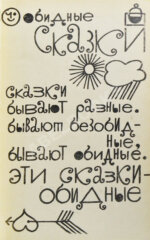 обидные
сказки
сказки
бывают разные.
бывают безобид-
ные,
бывают обидные.
эти сказки-
обидные